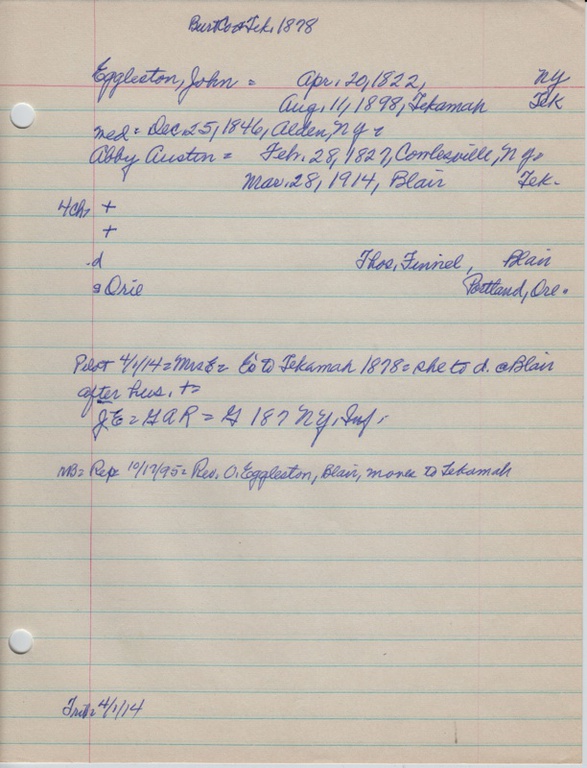 Burt Co & Tek. 1878
Eggleston, John = Apr. 20, 1822, NY
Aug. 11, 1898, Tekamah Tek
med = Dec. 25, 1846, Alden, NY =
Abby Austin = Feb. 28, 1827, Cowlesville, NY =
Mar. 28, 1914, Blair Tek.
4ch +
+
d Thos. Finnel, Blair
s Orie Portland, Ore.
Pilot 4/1/14 = Mrs E = E's to Tekamah 1878 = she to d. @ Blair
after hus. + =
JE = GAR = G 187 NY, Inf.
NB = Rep 10/17/95 = Rev. O. Eggleston, Blair, moves to Tekamah
Trib = 4/1/14